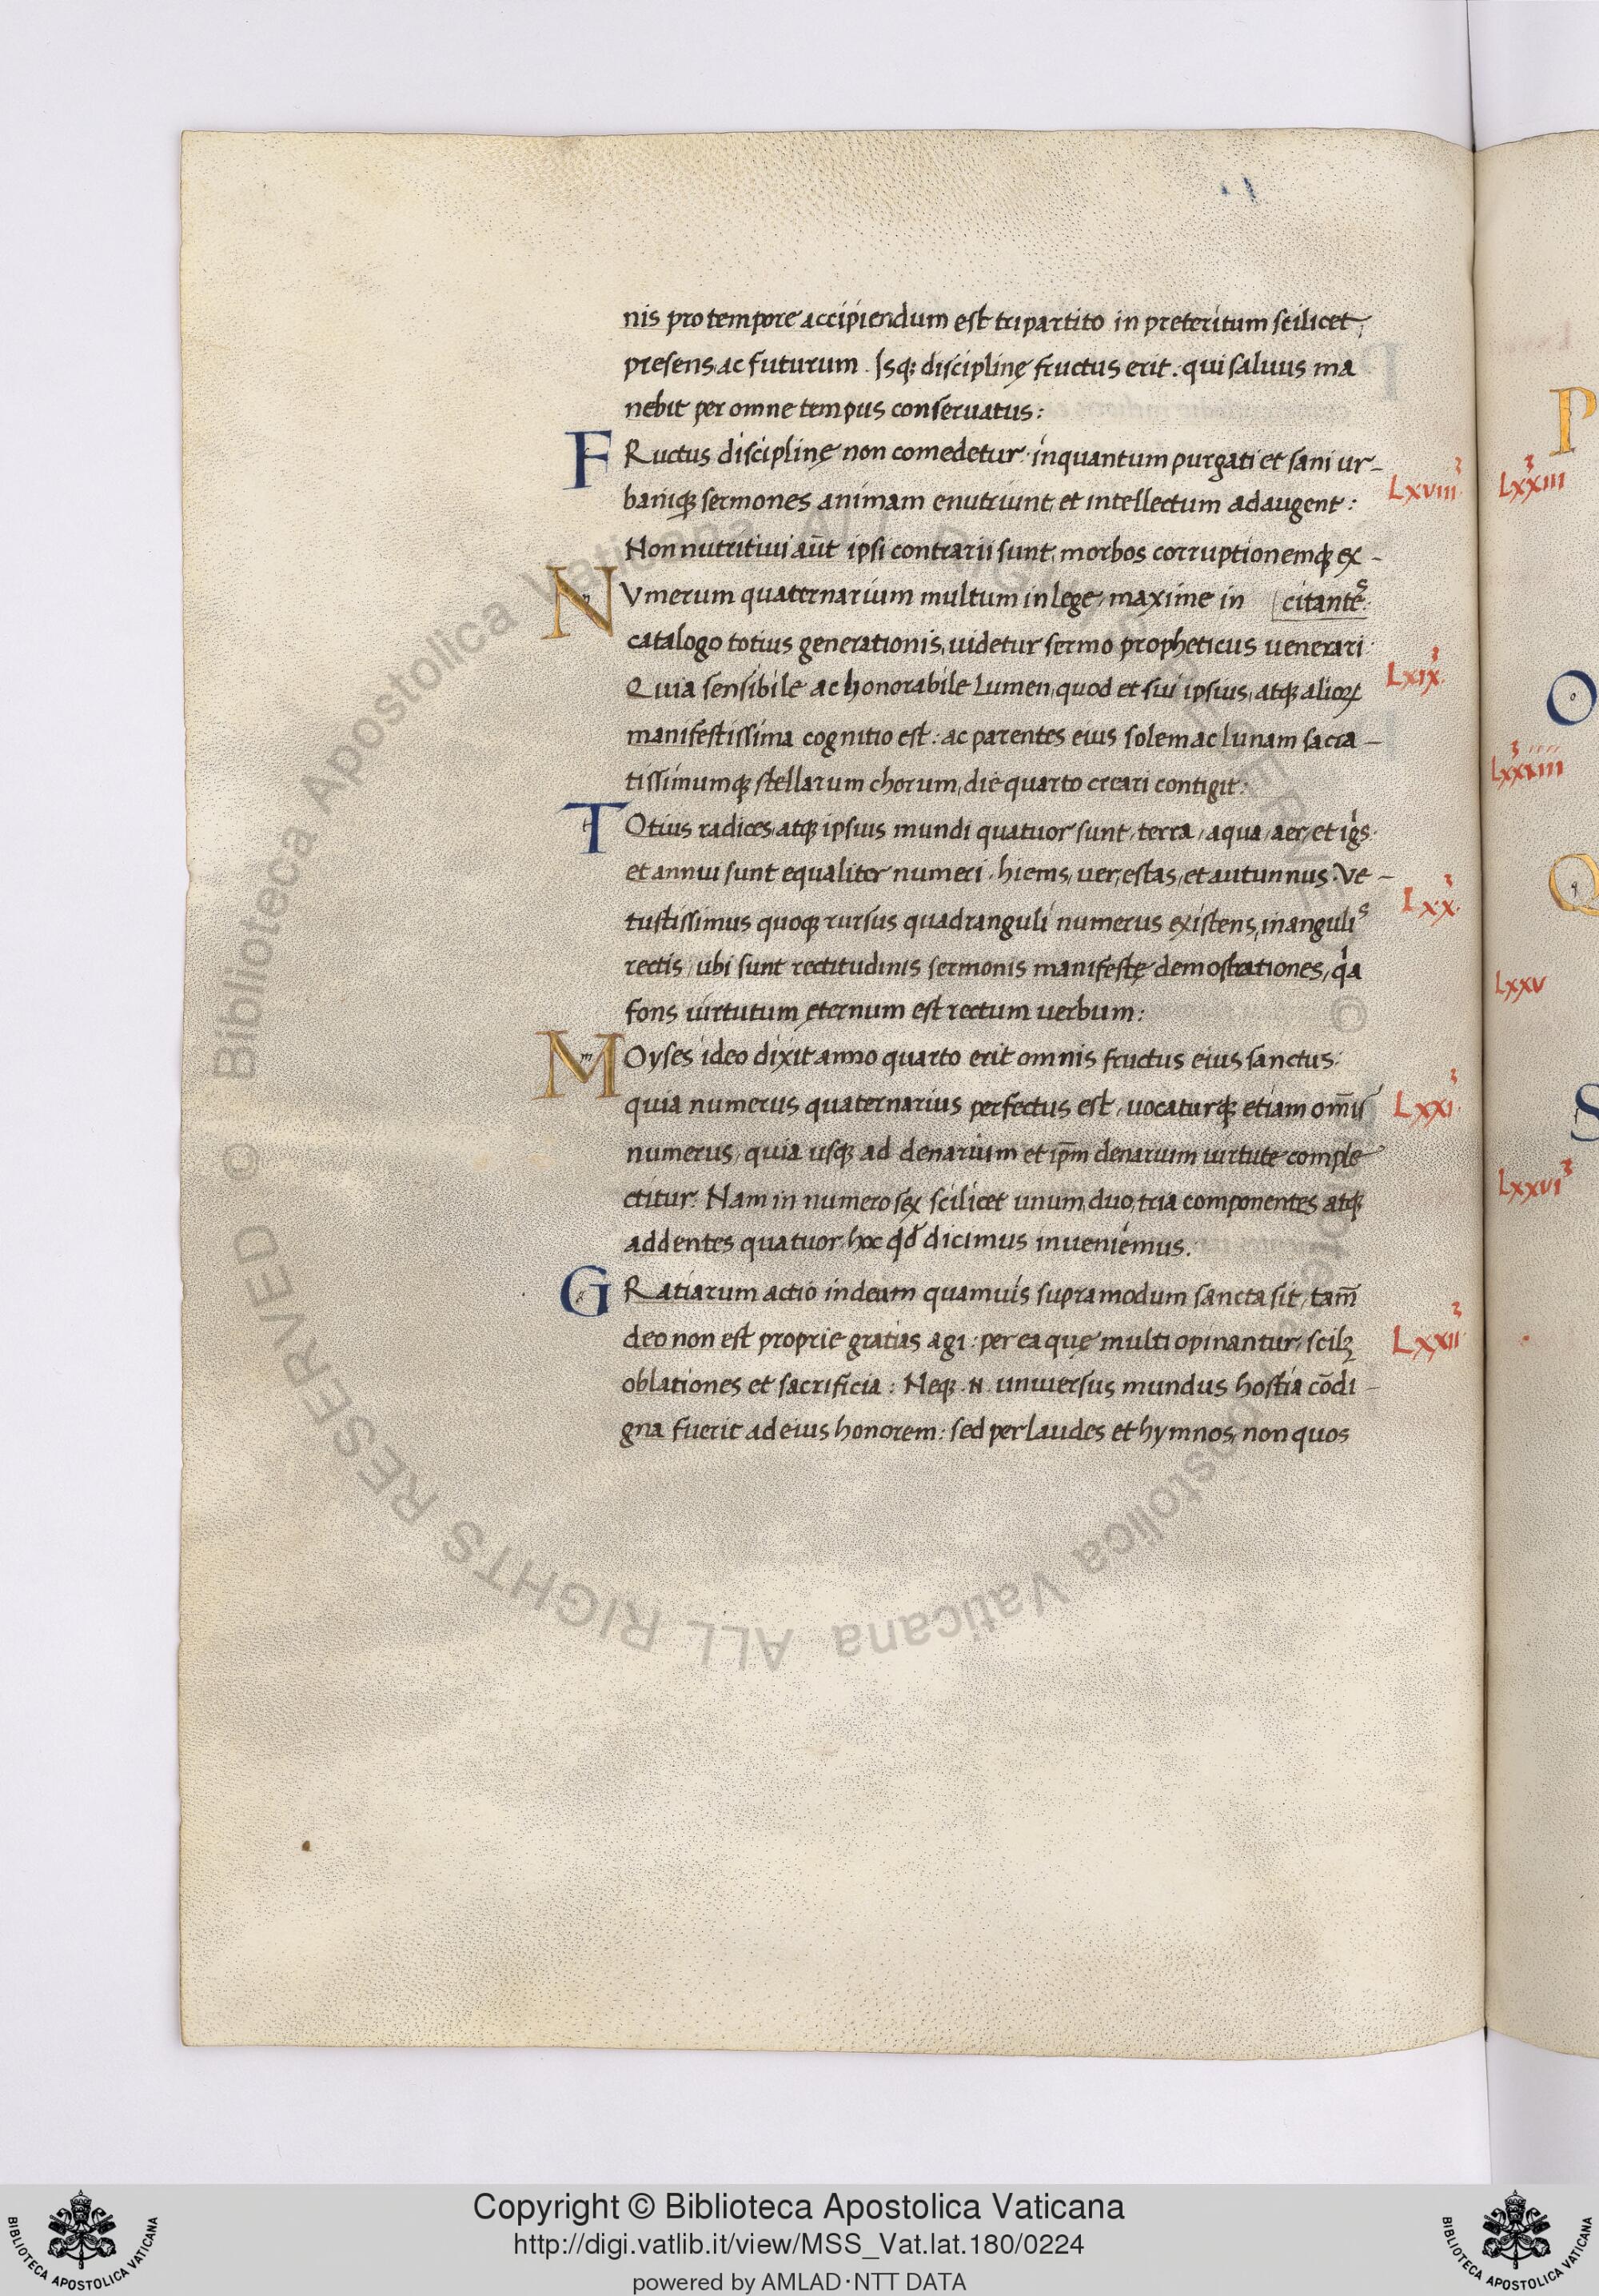 nis pro tempore accipiendum est tripartito in preteritum scilicet,
presens, ac futurum. Isq; disciplinę fructus erit. qui saluus ma
nebit per omne tempus conseruatus:
FRuctus disciplinę non comedetur. inquantum purgati et sani ur-
baniq; sermones animam enutriunt, et intellectum adaugent:
LXVIII
Non nutritiui aūt ipsi contrarii sunt, morbos corruptionemq; ex-
NVmerum quaternarium multum in lege, maxime in citantes.
catalogo totius generationis, uidetur sermo propheticus uenerari:
LXIX.
Quia sensibile ac honorabile lumen, quod et sui ipsius, atq; alioꝝ
manifestissima cognitio est: ac parentes eius solem ac lunam sacra-
tissimumq; stellarum chorum, die quarto creari contigit:
TOtius radices, atq; ipsius mundi quatuor sunt, terra, aqua, aer, et igs.
et annui sunt equaliter numeri. hiems, uer, estas, et autunnus. Ve-
LXX.
tustissimus quoq; rursus quadranguli numerus existens, in angulis
rectis, ubi sunt rectitudinis sermonis manifestę demostrationes, qa
fons uirtutum ęternum est rectum uerbum:
MOyses ideo dixit anno quarto erit omnis fructus eius sanctus:
quia numerus quaternarius perfectus est, uocaturq; etiam om̄is
LXXI.
numerus, quia usq; ad denarium et ip̄m denarium uirtute comple
ctitur. Nam in numero sex scilicet unum, duo, tria componentes atq;
addentes quatuor, hoc qd dicimus inueniemus.
GRatiarum actio in deum quamuis supra modum sancta sit, tam̄
deo non est proprie gratias agi: per ea quę multi opinantur, scilꝫ
LXXII
oblationes et sacrificia: Neq; .N. uniuersus mundus hostia cōdi-
gna fuerit ad eius honorem: sed per laudes et hymnos, non quos
P
LXXIII
O
LXXIIII
Q
LXXV
S
LXXVI
© Biblioteca Apostolica Vaticana ALL RIGHTS RESERVED
Copyright © Biblioteca Apostolica Vaticana
http://digi.vatlib.it/view/MSS_Vat.lat.180/0224
powered by AMLAD·NTT DATA
BIBLIOTECA APOSTOLICA VATICANA
BIBLIOTECA APOSTOLICA VATICANA